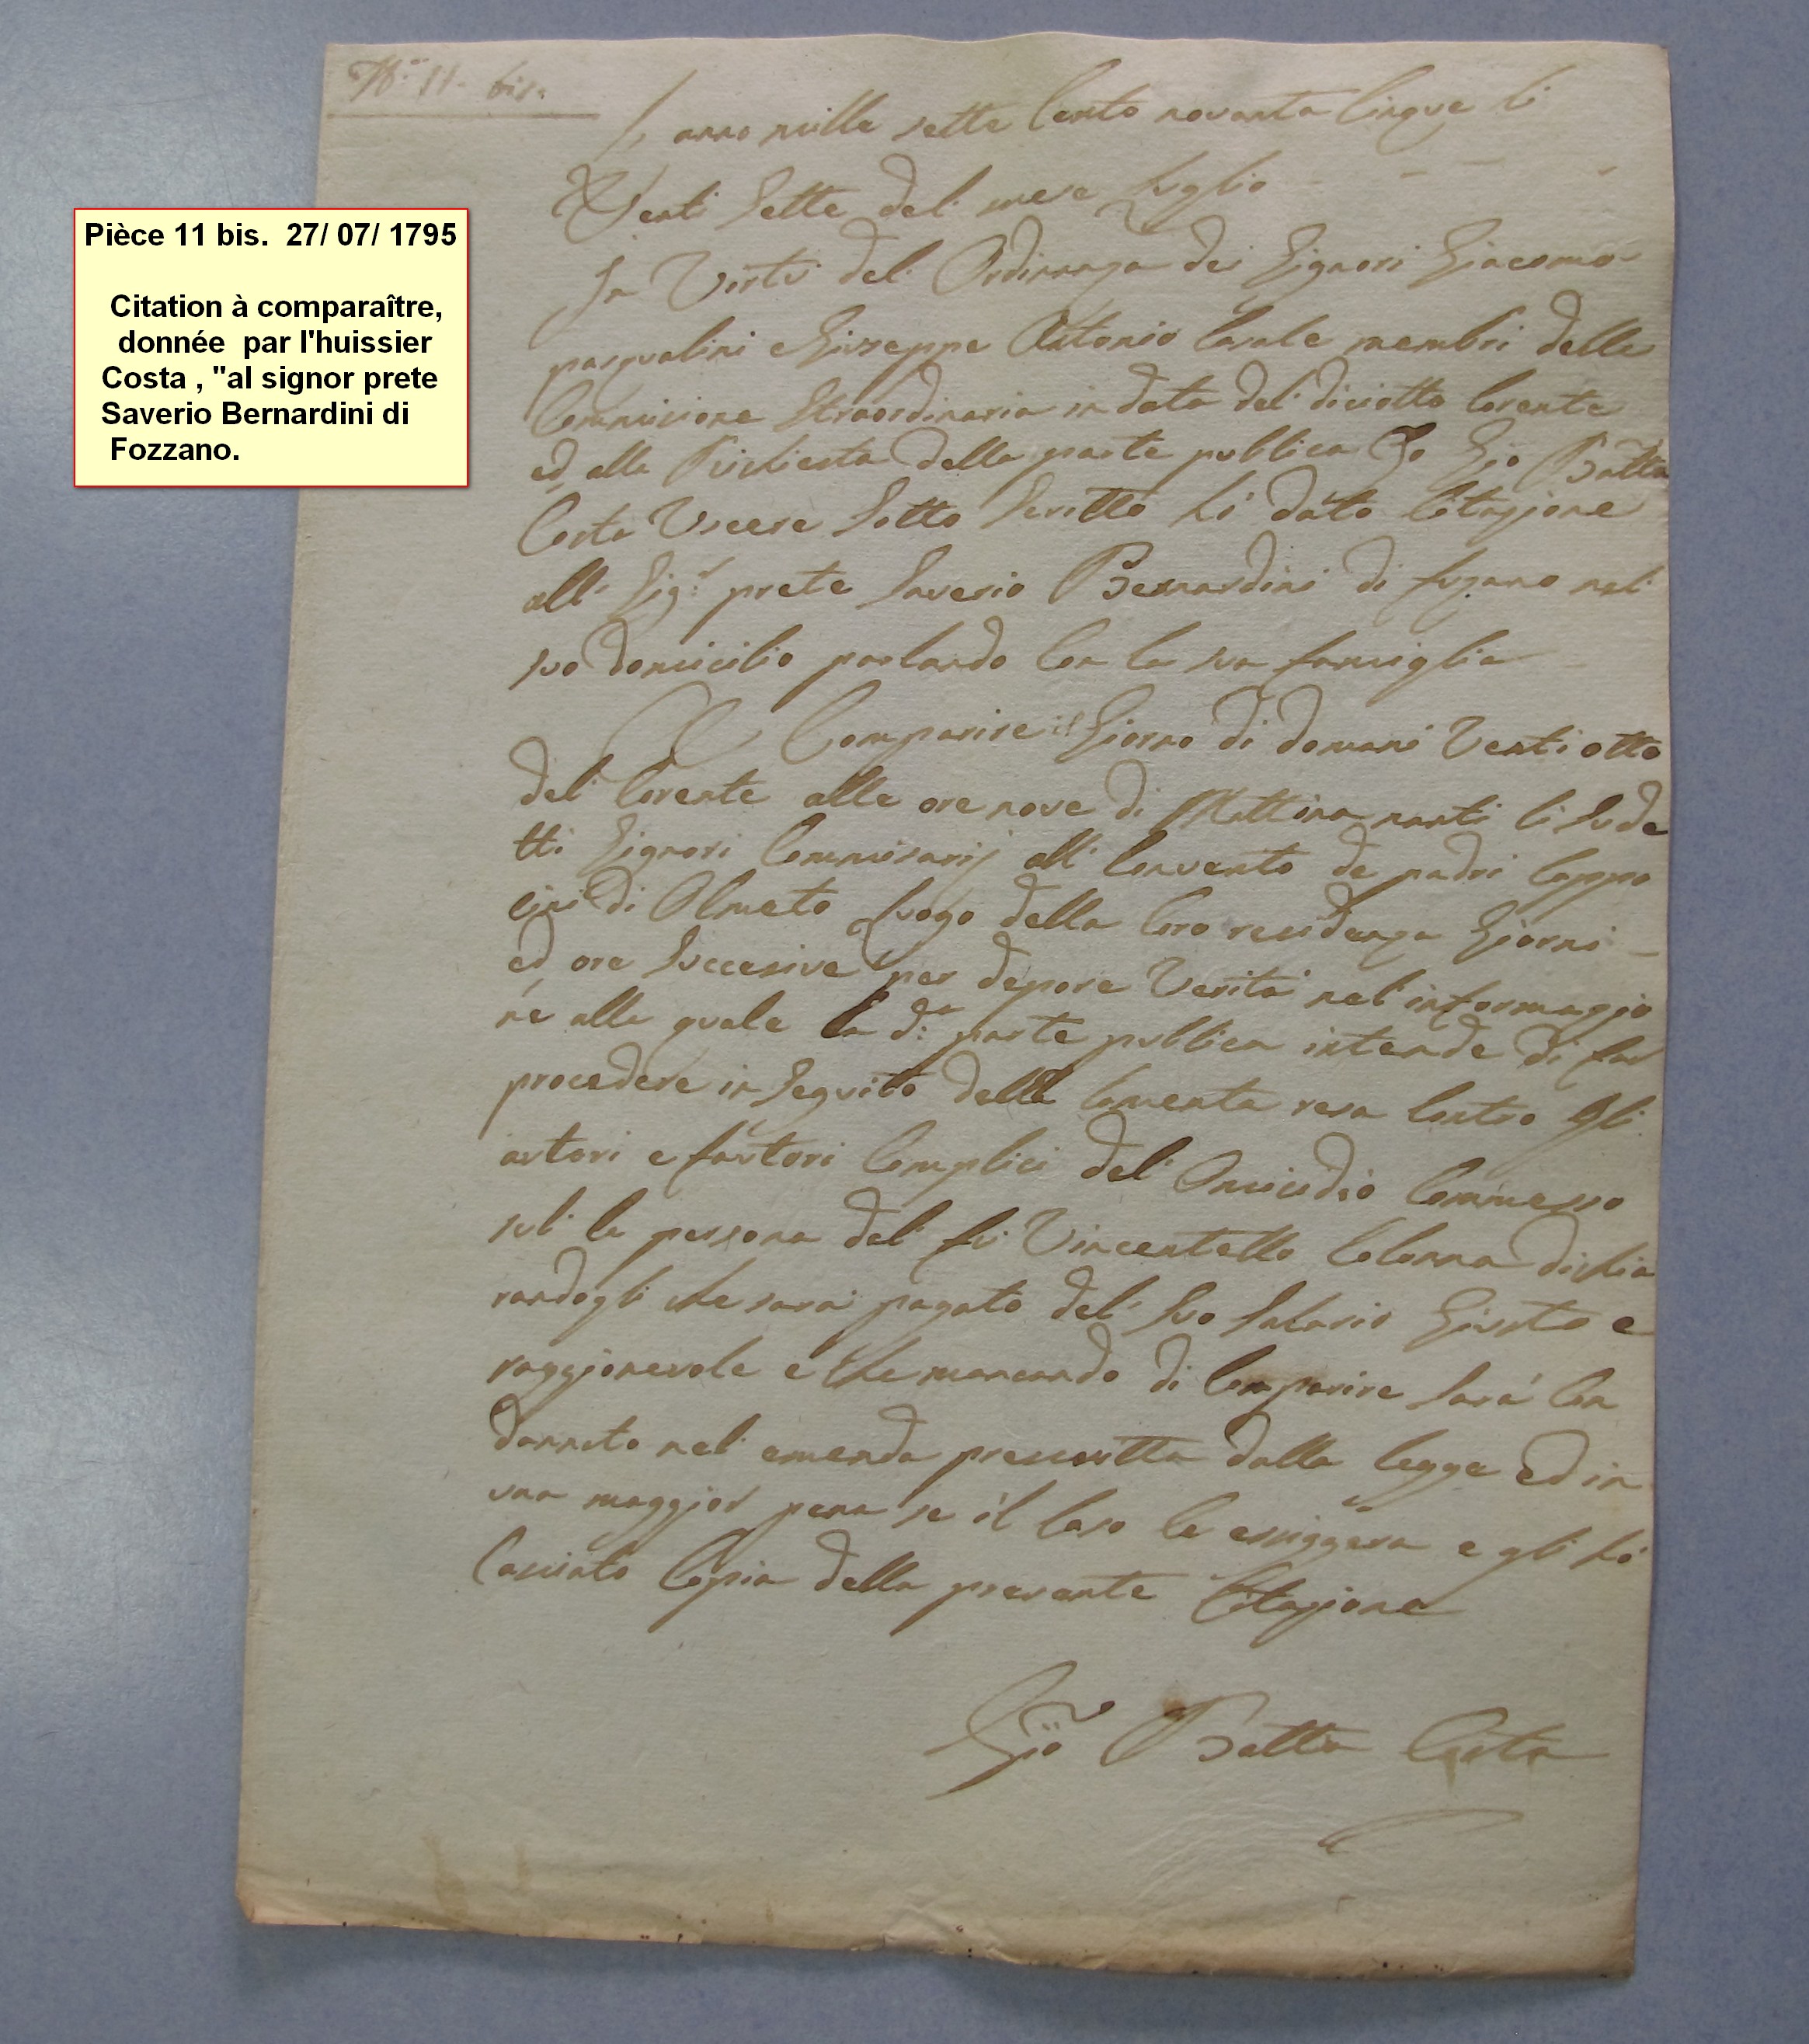 N.º 11. bis.
Pièce 11 bis. 27/ 07/ 1795
Citation à comparaître,
donnée par l'huissier
Costa , "al signor prete
Saverio Bernardini di
Fozzano.
L anno mille sette Cento novanta Cinque li
Venti Sette del mese Luglio
In Virtù del Ordinanza dei Signori Giacomo
pasqualini e Giuseppe Antonio Casale membri della
Commissione Straordinaria in data del diciotto Corente
ed alla Richiesta della parte publica Io Gio Batta
Costa Uscere Sotto Scritto hò dato Citazione
all Sig.r prete Saverio Bernardini di fuzano nel
suo domicilio parlando Con la sua famiglia
A Comparire il Giorno di domani Venti otto
del Corente alle ore nove di Mattina nanti li Sude
tti Signori Commisarij all Convento de padri Cappo
cini di Olmeto Luogo della loro residenza Giorni
ed ore Succesive per depore Verità nel informazio
ne alla quale la d.a parte publica intende di far
procedere in Seguito della lamenta resa Contro Gli
autori e fautori Complici del Omicidio Commesso
sul la persona del fù Vincentello Colonna dichia
randogli che sarai pagato del Suo Salario Giusto e
raggionevole e che mancando di Comparire Sarà Con
dannato nel emenda prescritta dalla legge ed in
una maggior pena se il Caso lo essiggera e gli hò
Lasciato Copia della presente Citazione
Gio Batta Costa